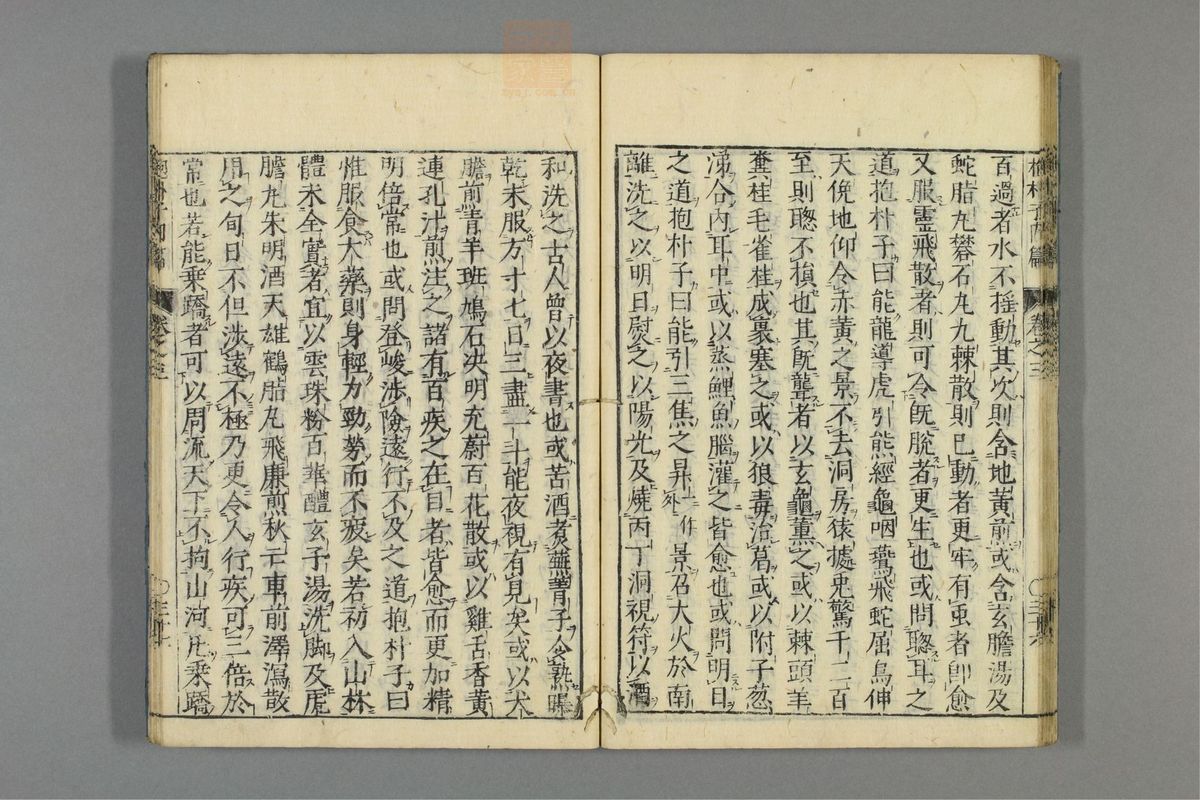 百過者水不揺動其次則含地黄煎或含玄膽湯及
蛇脂丸礬石丸九棘散則已動者更牢有虫者即愈
又服靈飛散者則可令既脱者更生也或問聦耳之
道抱朴子曰能龍導虎引熊經龜咽鷰飛蛇屈鳥伸
天俛地仰令赤黄之景不去洞房猿據兎驚千二百
至則聦不損也其既聾者以玄龜薫之或以棘頭羊
糞桂毛雀桂成裹塞之或以狼毒冶葛或以附子葱
涕合内耳中或以蒸鯉魚腦灌之皆愈也或問明目
之道抱朴子曰能引三焦之昇景召大火於南
離洗之以明目熨之以陽光及燒丙丁洞視符以酒
和洗之古人曾以夜書也或苦酒煮蕪菁子令熟曝
乾末服方寸七日三盡一斗能夜視有見矣或以犬
膽煎青羊班鳩石决明充蔚百花散或以雞舌香黄
連乳汁煎注之諸有百疾之在目者皆愈而更加精
明倍常也或問登峻渉險遠行不及之道抱朴子曰
惟服食大藥則身輕力勁勞而不疲矣若初入山林
體未全實者宜以雲珠粉百華醴玄子湯洗脚及虎
膽丸朱明酒天雄鶴脂丸飛廉煎秋芒車前澤瀉散
用之旬日不但渉遠不極乃更令人行疾可三倍於
常也若能乗蹻者可以周流天下不拘山河凡乗蹻